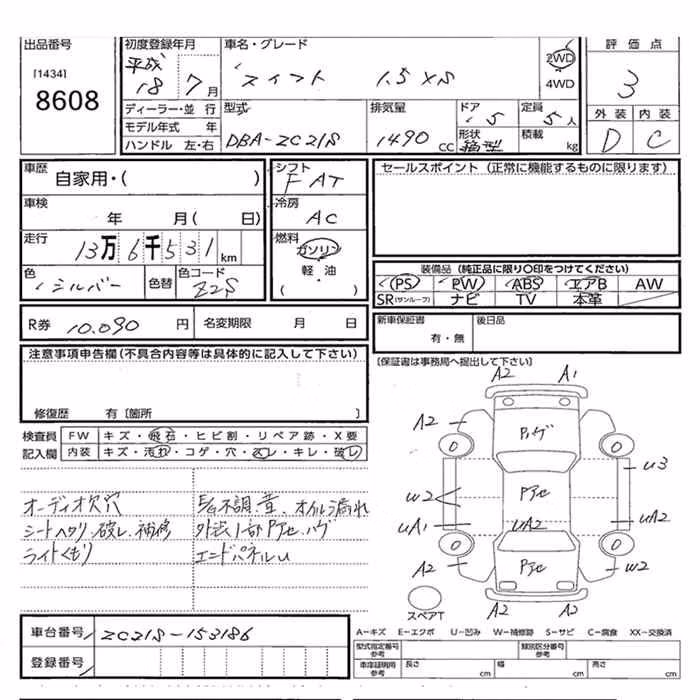 出品番号
[1434]
8608
初度登録年月
平成
18 7月
車名・グレード
スイフト 1.5 XS
2WD
4WD
評価点
3
外装 内装
D C
ディーラー・並行
モデル年式 年
ハンドル 左・右
型式
DBA-ZC21S
排気量
1490 CC
ドア
5
形状
箱型
定員
5人
積載
kg
車歴
自家用・( )
車検
年 月( 日)
走行
13万6千531km
色
シルバー
色替
色コード
Z2S
シフト
FAT
冷房
AC
燃料
ガソリン
軽・油
( ・ )
セールスポイント (正常に機能するものに限ります)
装備品 (純正品に限り〇印をつけてください)
PS PW ABS エアB AW
SR(サンルーフ) ナビ TV 本革
R券 10.090 円 名変期限 月 日
新車保証書
有・無
後日品
(保証書は事務局へ提出して下さい)
注意事項申告欄(不具合内容等は具体的に記入して下さい)
修復歴 有〔箇所 〕
検査員
記入欄
FW キズ・飛石・ヒビ割・リペア跡・X要
内装 キズ・汚れ・コゲ・穴・スレ・キレ・破レ
オーディオ欠穴
シートヘタリ、破レ、補修
ライトくもり
不調、音、オイル漏れ
外装1部Pアセ、ハゲ
エンドパネルU
A2 A1
A2 Pハゲ
U3
W2 Pアセ
UA1 UA2 UA2
A2 Pアセ W2
A2 A2
スペアT
A-キズ E-エクボ U-凹み W-補修跡 S-サビ C-腐食 XX-交換済
車台番号 ZC21S-153186
登録番号
型式指定番号
参考
類別区分番号
参考
車庫証明用
参考
長さ cm 幅 cm 高さ cm